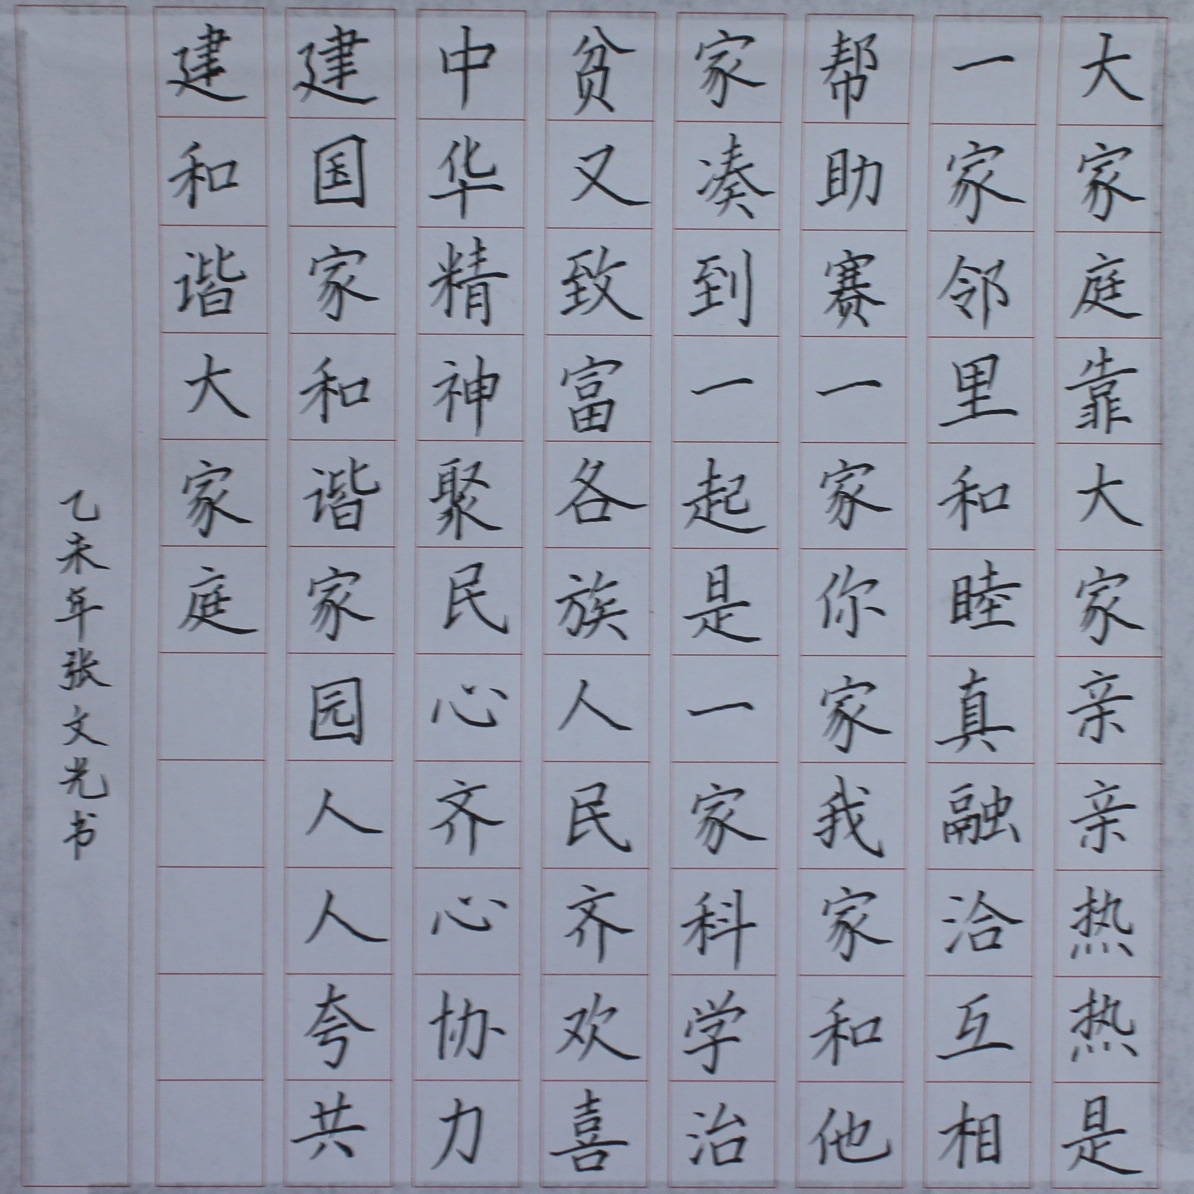 大家庭靠大家亲亲热热是
一家邻里和睦真融洽互相
帮助赛一家你家我家和他
家凑到一起是一家科学治
贫又致富各族人民齐欢喜
中华精神聚民心齐心协力
建国家和谐家园人人夸共
建和谐大家庭
乙未年张文光书